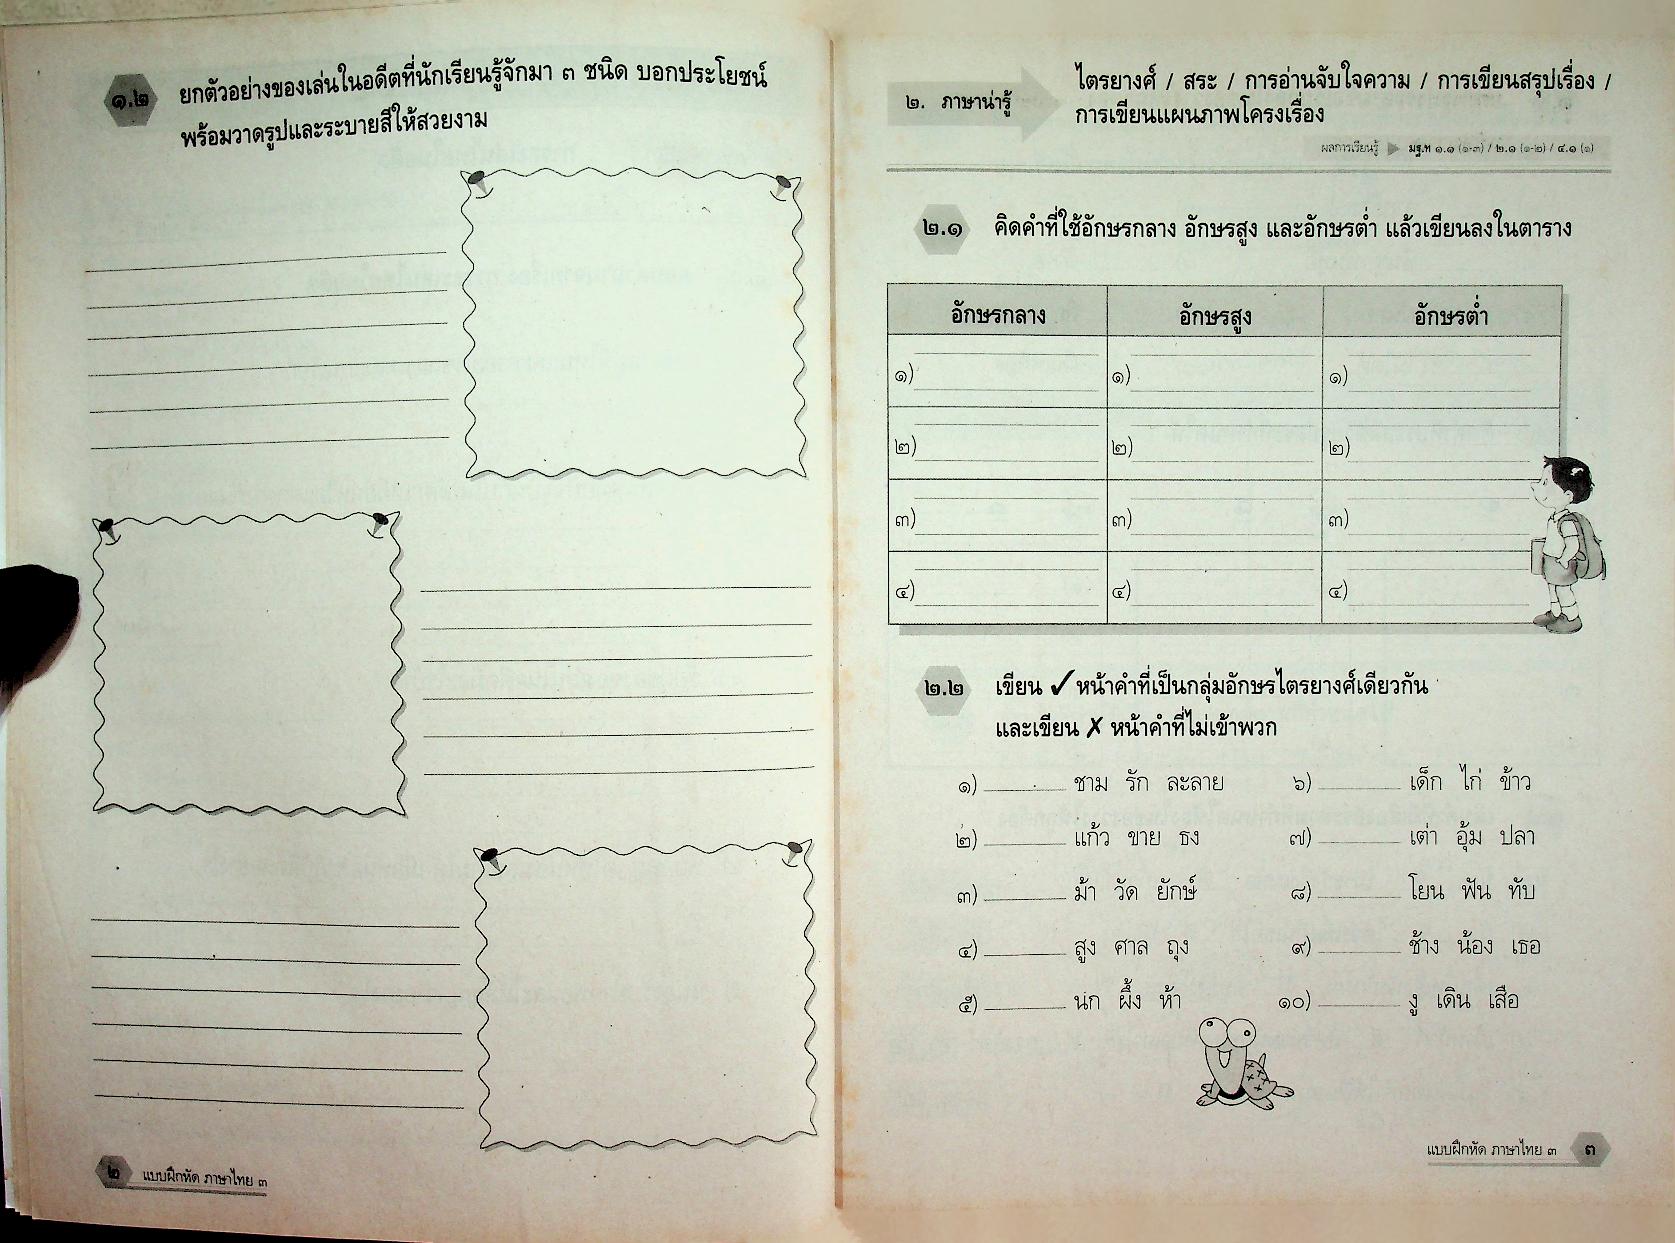 ๑.๒ ยกตัวอย่างของเล่นในอดีตที่นักเรียนรู้จักมา ๓ ชนิด บอกประโยชน์
พร้อมวาดรูปและระบายสีให้สวยงาม
๒ แบบฝึกหัด ภาษาไทย ๓
๒. ภาษาน่ารู้
ไตรยางศ์ / สระ / การอ่านจับใจความ / การเขียนสรุปเรื่อง /
การเขียนแผนภาพโครงเรื่อง
ผลการเรียนรู้ มฐ.ท ๑.๑ (๑-๓) / ๒.๑ (๑-๒) / ๔.๑ (๑)
๒.๑ คิดคำที่ใช้อักษรกลาง อักษรสูง และอักษรต่ำ แล้วเขียนลงในตาราง
อักษรกลาง อักษรสูง อักษรต่ำ
๑) ๑) ๑)
๒) ๒) ๒)
๓) ๓) ๓)
๔) ๔) ๔)
๒.๒ เขียน ✓ หน้าคำที่เป็นกลุ่มอักษรไตรยางศ์เดียวกัน
และเขียน ✗ หน้าคำที่ไม่เข้าพวก
๑) ชาม รัก ละลาย ๖) เด็ก ไก่ ข้าว
๒) แก้ว ขาย ธง ๗) เต่า อุ้ม ปลา
๓) ม้า วัด ยักษ์ ๘) โยน ฟัน ทับ
๔) สูง ศาล ถุง ๙) ช้าง น้อง เธอ
๕) นก ผึ้ง ห้า ๑๐) งู เดิน เสือ
แบบฝึกหัด ภาษาไทย ๓ ๓